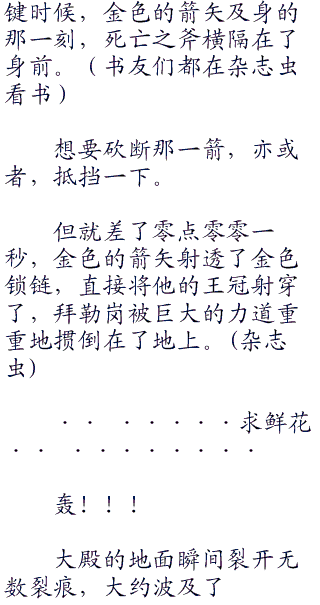 键时候，金色的箭矢及身的
那一刻，死亡之斧横隔在了
身前。（书友们都在杂志虫
看书）
想要砍断那一箭，亦或
者，抵挡一下。
但就差了零点零零一
秒，金色的箭矢射透了金色
锁链，直接将他的王冠射穿
了，拜勒岗被巨大的力道重
重地掼倒在了地上。(杂志
虫)
·· ······求鲜花
·· ··········
轰！！！
大殿的地面瞬间裂开无
数裂痕，大约波及了